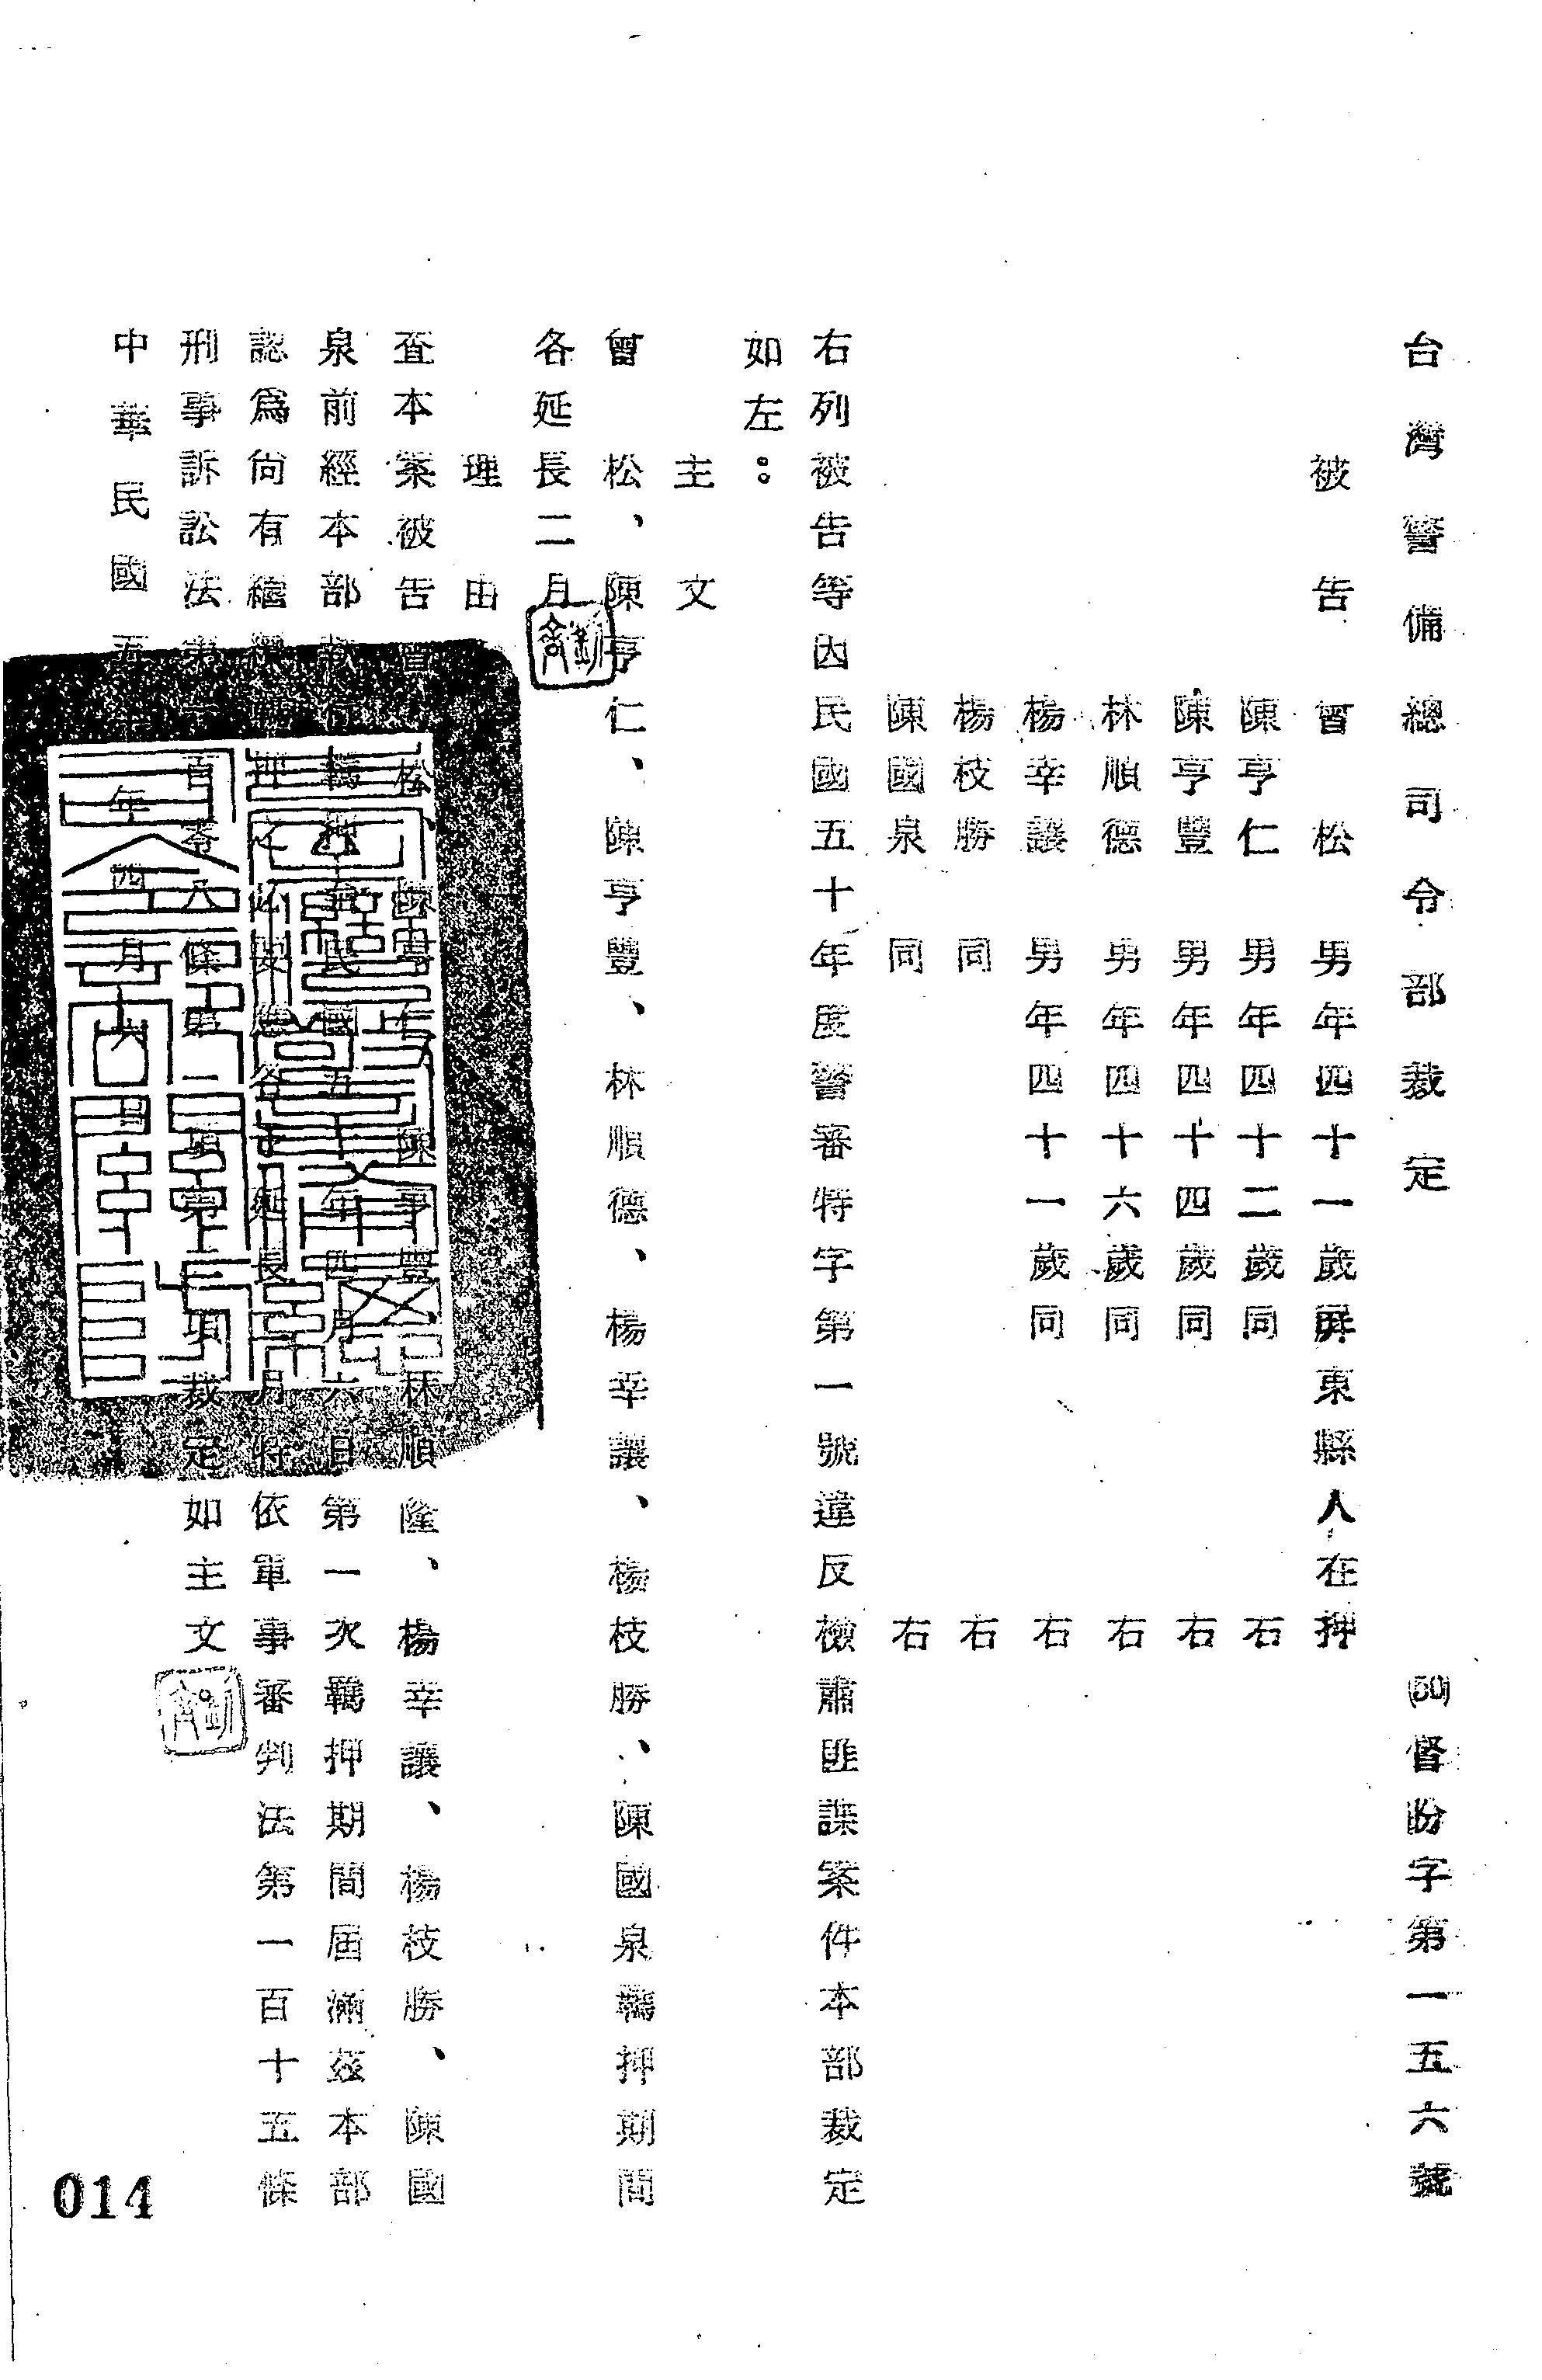 台灣警備總司令部裁定 (50)督盼字第一五六號
被告 曾松 男年四十一歲屏東縣人在押
陳亨仁 男年四十二歲同 右
陳亨豐 男年四十四歲同 右
林順德 男年四十六歲同 右
楊幸讓 男年四十一歲同 右
楊枝勝 同 右
陳國泉 同 右
右列被告等因民國五十年匪警審特字第一號違反檢肅匪諜案件本部裁定
如左：
主文
曾松、陳亨仁、陳亨豐、林順德、楊幸讓、楊枝勝、陳國泉羈押期間
各延長二月
理由
查本案被告曾松、陳亨仁、陳亨豐、林順隆、楊幸讓、楊枝勝、陳國
泉前經本部 羈押 民國五十年四月六日第一次羈押期間屆滿茲本部
認為尚有繼續羈押之必要應各予延長二月特依軍事審判法第一百十五條
刑事訴訟法第一百零八條第二項第 項裁定如主文
中華民國五十年四月六日
014